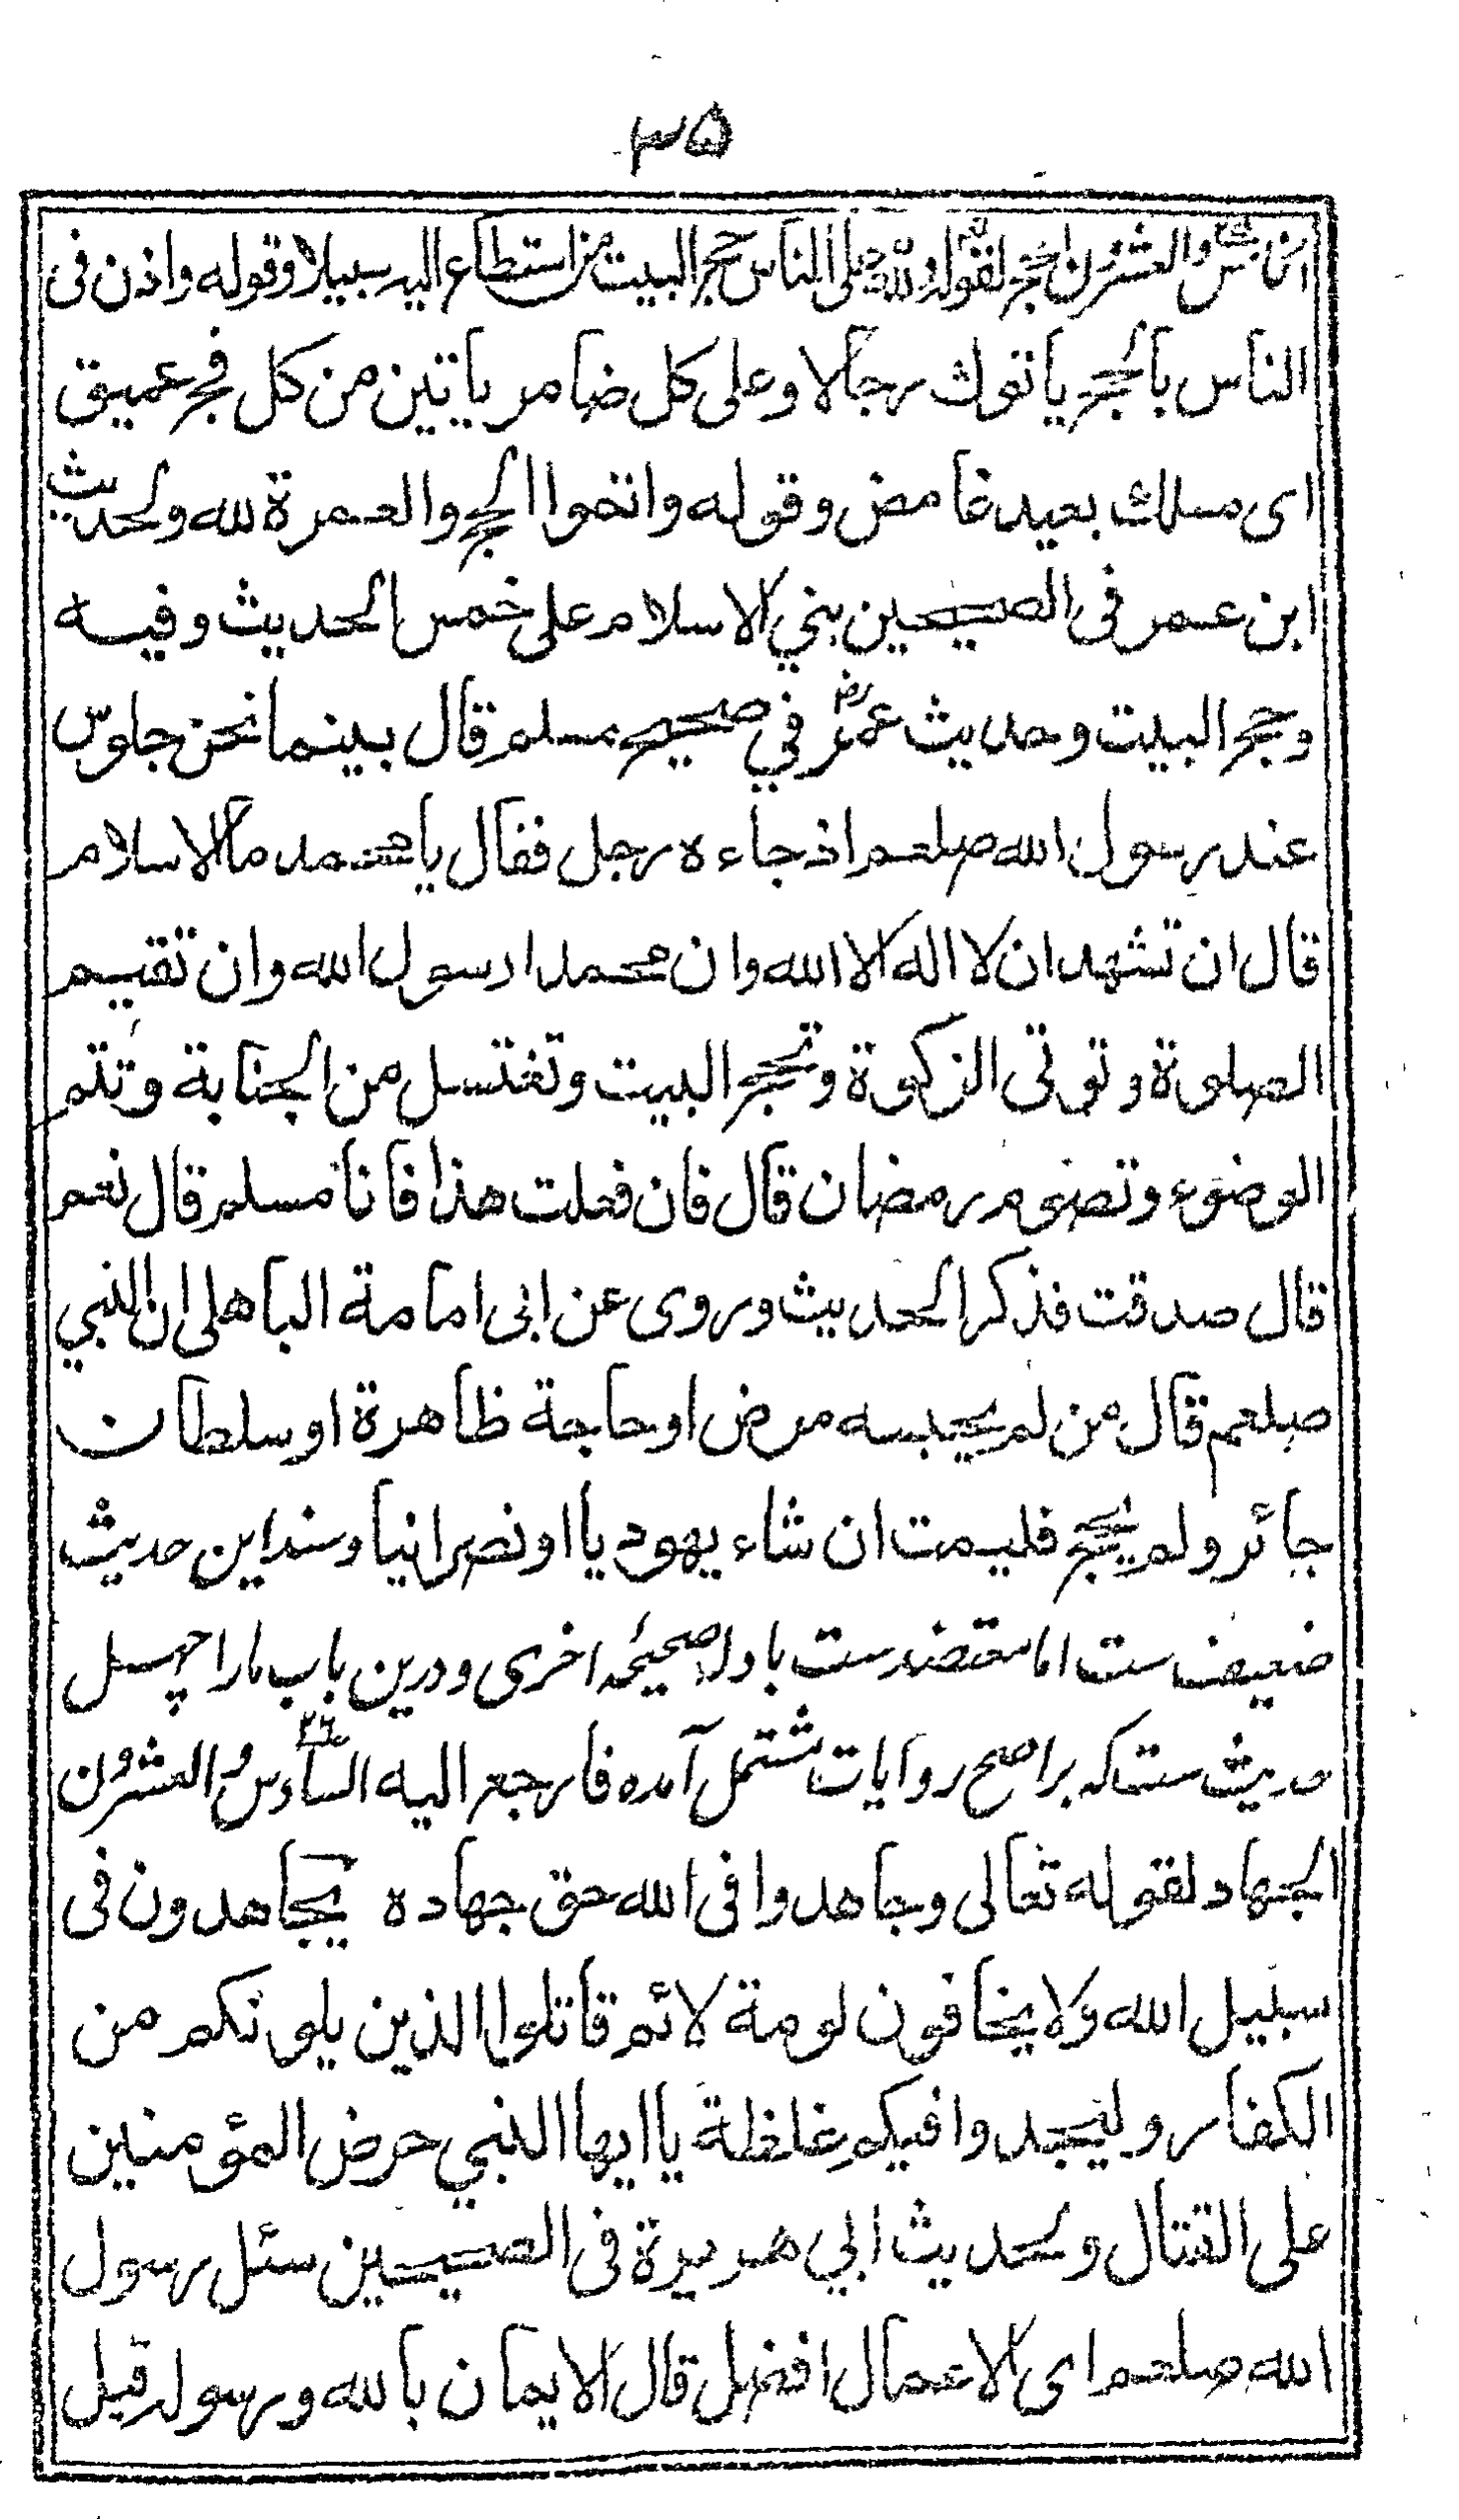 ۳۵
الخامس والعشرون الحج لقوله ولله على الناس حج البيت من استطاع اليه سبيلا وقوله واذن فى
الناس بالحج ياتوك رجالا وعلى كل ضامر ياتين من كل فج عميق
اى مسلك بعيد غامض وقوله واتموا الحج والعمرة لله ولحديث
ابن عمر فى الصحيحين بني الاسلام على خمس الحديث وفيه
وحج البيت وحديث عمررض في صحيح مسلم قال بينما نحن جلوس
عند رسول الله صلعم اذ جاءه رجل فقال يا محمد ما الاسلام
قال ان تشهد ان لا اله الا الله وان محمدا رسول الله وان تقيم
الصلوة وتوتى الزكوة وتحج البيت وتغتسل من الجنابة وتتم
الوضوء وتصوم رمضان قال فان فعلت هذا فانا مسلم قال نعم
قال صدقت فذكر الحديث وروى عن ابى امامة الباهلى ان النبي
صلعم قال من لم يحبسه مرض او حاجة ظاهرة او سلطان
جائر ولم يحج فليمت ان شاء يهوديا او نصرانيا وسند اين حديث
ضعيف ست اما معتضدست بادلهٔ صحيحهٔ اخرى ودرين باب مارا چهل
حديث ست كه بر اصح روايات مشتمل آمده فارجع اليه السادس والعشرون ۲۶
الجهاد لقوله تعالى وجاهدوا فى الله حق جهاده يجاهدون فى
سبيل الله ولا يخافون لومة لائم قاتلوا الذين يلونكم من
الكفار وليجدوا فيكم غلظة يا ايها النبي حرض المؤمنين
على القتال ولحديث ابي هريرة فى الصحيحين سئل رسول
الله صلعم اى الاعمال افضل قال الايمان بالله ورسوله قيل